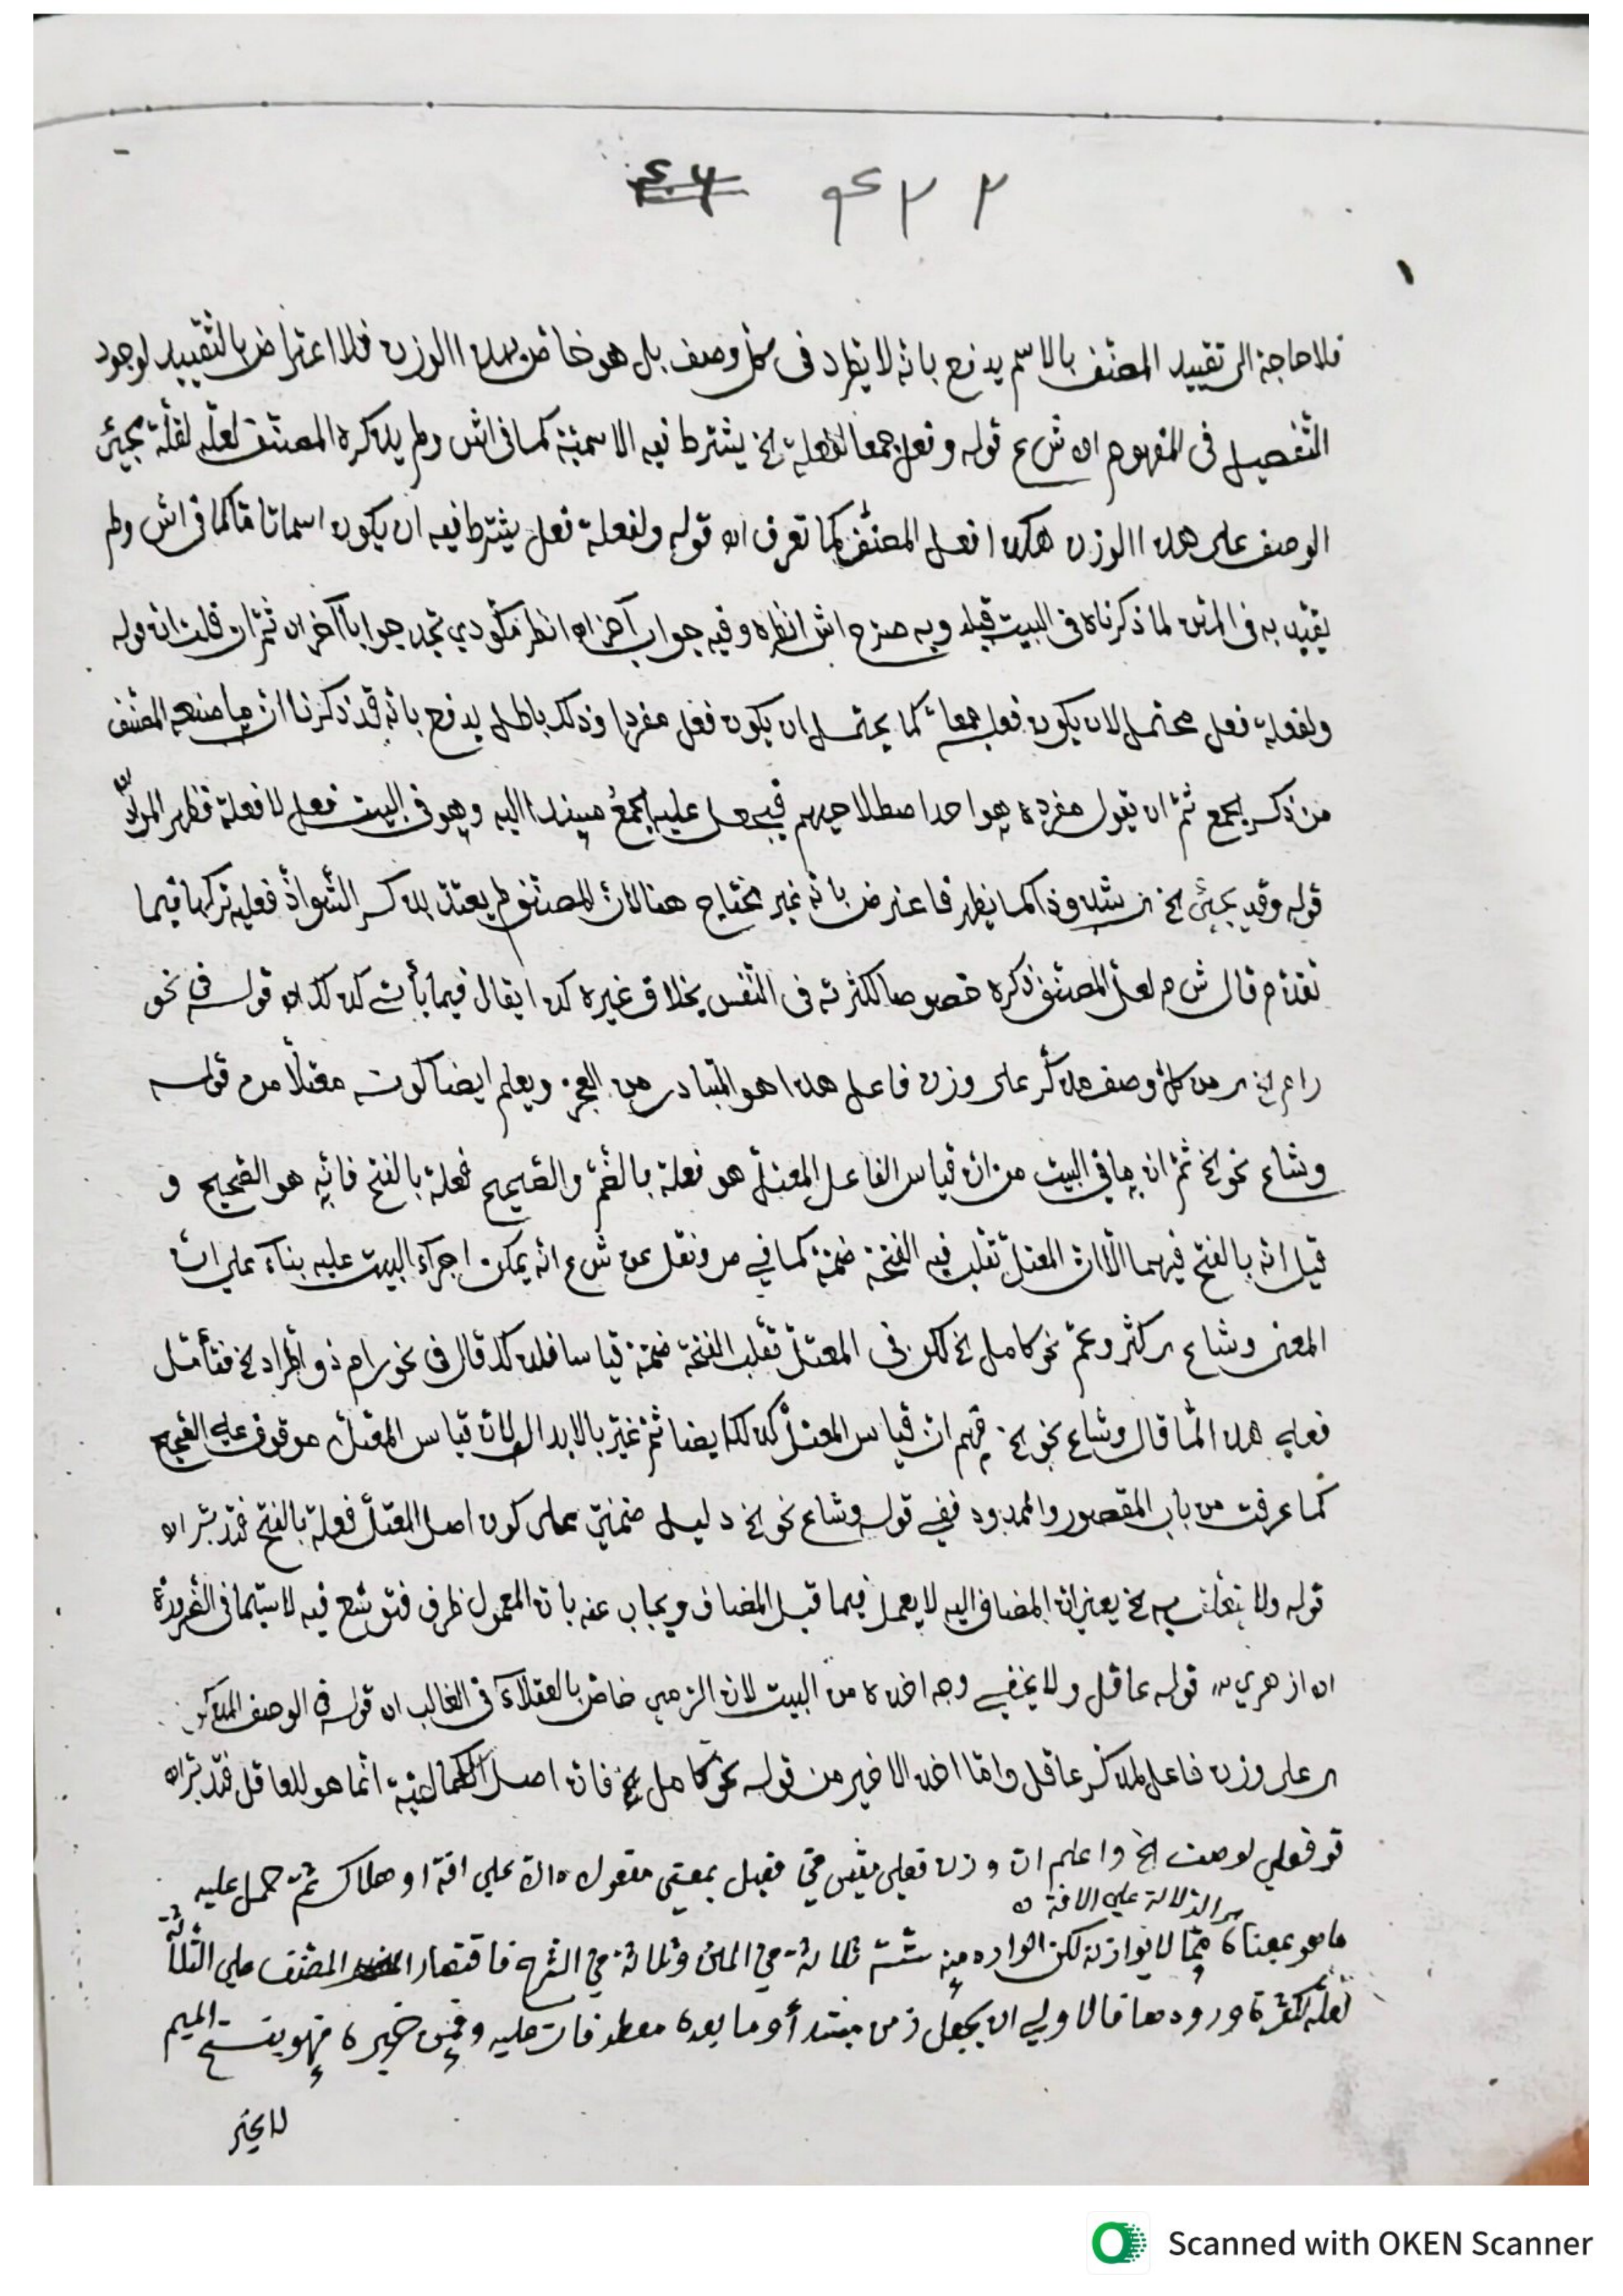 فلا حاجة الى تقييد المصنّف بالاسم يدفع بانّه لا يطّرد فى كلّ وصف بل هو خاصّ بهذا الوزن فلا اعتراض بالتّقييد لوجود
التّفصيل فى المفهوم اه ش ع قوله وفعل جمعا لفعلة الخ يشترط فيه الاسميّة كما فى اش ولم يذكره المصنّف لعلّه لقلّة مجيئ
الوصف على هذا الوزن هكذا فعل المصنّف كما تعرف اه قوله ولفعلة فعل يشترط فيه ان يكون اسما تامّا كما فى اش ولم
يقيّد به فى المتن لما ذكرناه فى البيت قبله وبه صرّح اش انظره وفيه جواب آخر اه انظر مكّودي تجد جوابا آخر اه ثمّ ان قلت ان قوله
ولفعلة فعل محتمل لان يكون فعل جمعا كما يحتمل ان يكون فعل مفردا وذلك باطل يدفع بانّه قد ذكرنا انّ ما صنعه المصنّف
من ذكر الجمع ثمّ ان يقول مفرده هو احد اصطلاحيهم فيجعل عليه الجمع مسندا اليه وهو فى البيت فعل لا فعلة فظهر المراد
قوله وقد يجيئ الخ شذوذا كما يظهر فاعترض بانّه غير محتاج هنا لانّ المصنّف لم يعتدّ بذكر الشّواذّ فعليه تركها فيما
تقدّم قال ش م لعلّ المصنّف ذكره خصوصا لكثرته فى النّفس بخلاف غيره كذا يقال فيما يأتي كذلك اه قوله فى نحو
رام الخ من كلّ وصف مذكّر على وزن فاعل هذا هو المتبادر من العجز ويعلم ايضا كونه معتلّا من قوله
وشاع نحو الخ ثمّ ان ما في البيت من ان قياس الفاعل المعتلّ هو فعلة بالضّمّ والصّحيح فعلة بالفتح فانّه هو الصّحيح و
قيل انّه بالفتح فيهما الّا ان المعتلّ تقلب فيه الفتحة ضمّة كما في مر ونقل عن ش ع انّه يمكن اجراء البيت عليه بناء على انّ
المعنى وشاع كثر وعمّ نحو كامل الخ لكن فى المعتلّ تقلب الفتحة ضمّة قياسا فلذلك قال فى نحو رام ذو اطّراد الخ فتأمّل
فعلى هذا لمّا قال وشاع نحو الخ فهم ان قياس المعتلّ كذلك ايضا ثمّ غيّر بالابدال لانّ قياس المعتلّ موقوف على الصّحيح
كما عرفت من باب المقصور والممدود ففي قوله وشاع نحو الخ دليل ضمنيّ على كون اصل المعتلّ فعلة بالفتح فتدبّر اه
قوله ولا الخ يعنى ان المضاف اليه لا يعمل فيما قبل المضاف ويجاب عنه بانّ المعمول ظرف فتوسّع فيه لا سيّما فى الضّرورة
اه ازهري قوله عاقل ولا يخفى وجه اخذه من البيت لان الرّمي خاصّ بالعقلاء فى الغالب اه قوله فى الوصف المذكّر
على وزن فاعل لمذكّر عاقل وامّا اخذ الاخير من قوله نحو كامل الخ فانّ اصل الكماليّة انّما هو للعاقل فتدبّر اه
قو فعلي لوصف الخ واعلم ان وزن فعلى مقيس في فعيل بمعني مفعول دالة علي افة او هلاك ثمّ حمل عليه
الدّلالة علي الافة
ما هو بمعناه ممّا لا يوازنه لكن الوارد منه ستّة ثلاثة في المتن وثلاثة في الشّرح فاقتصار المصنّف علي الثّلاثة
لعلّه لكثرة ورودها فالاولي ان يجعل زمن مبتدأ وما بعده معطوفات عليه وقمن خبره فهو بفتح الميم
لا بخبر
Scanned with OKEN Scanner